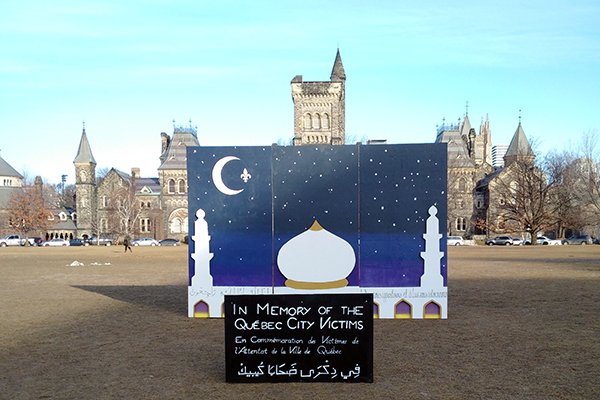 IN MEMORY OF THE
QUÉBEC CITY VICTIMS
En Commémoration des Victimes de
l'Attentat de la Ville de Québec
فِي ذِكْرَى ضَحَايَا كُيبيك